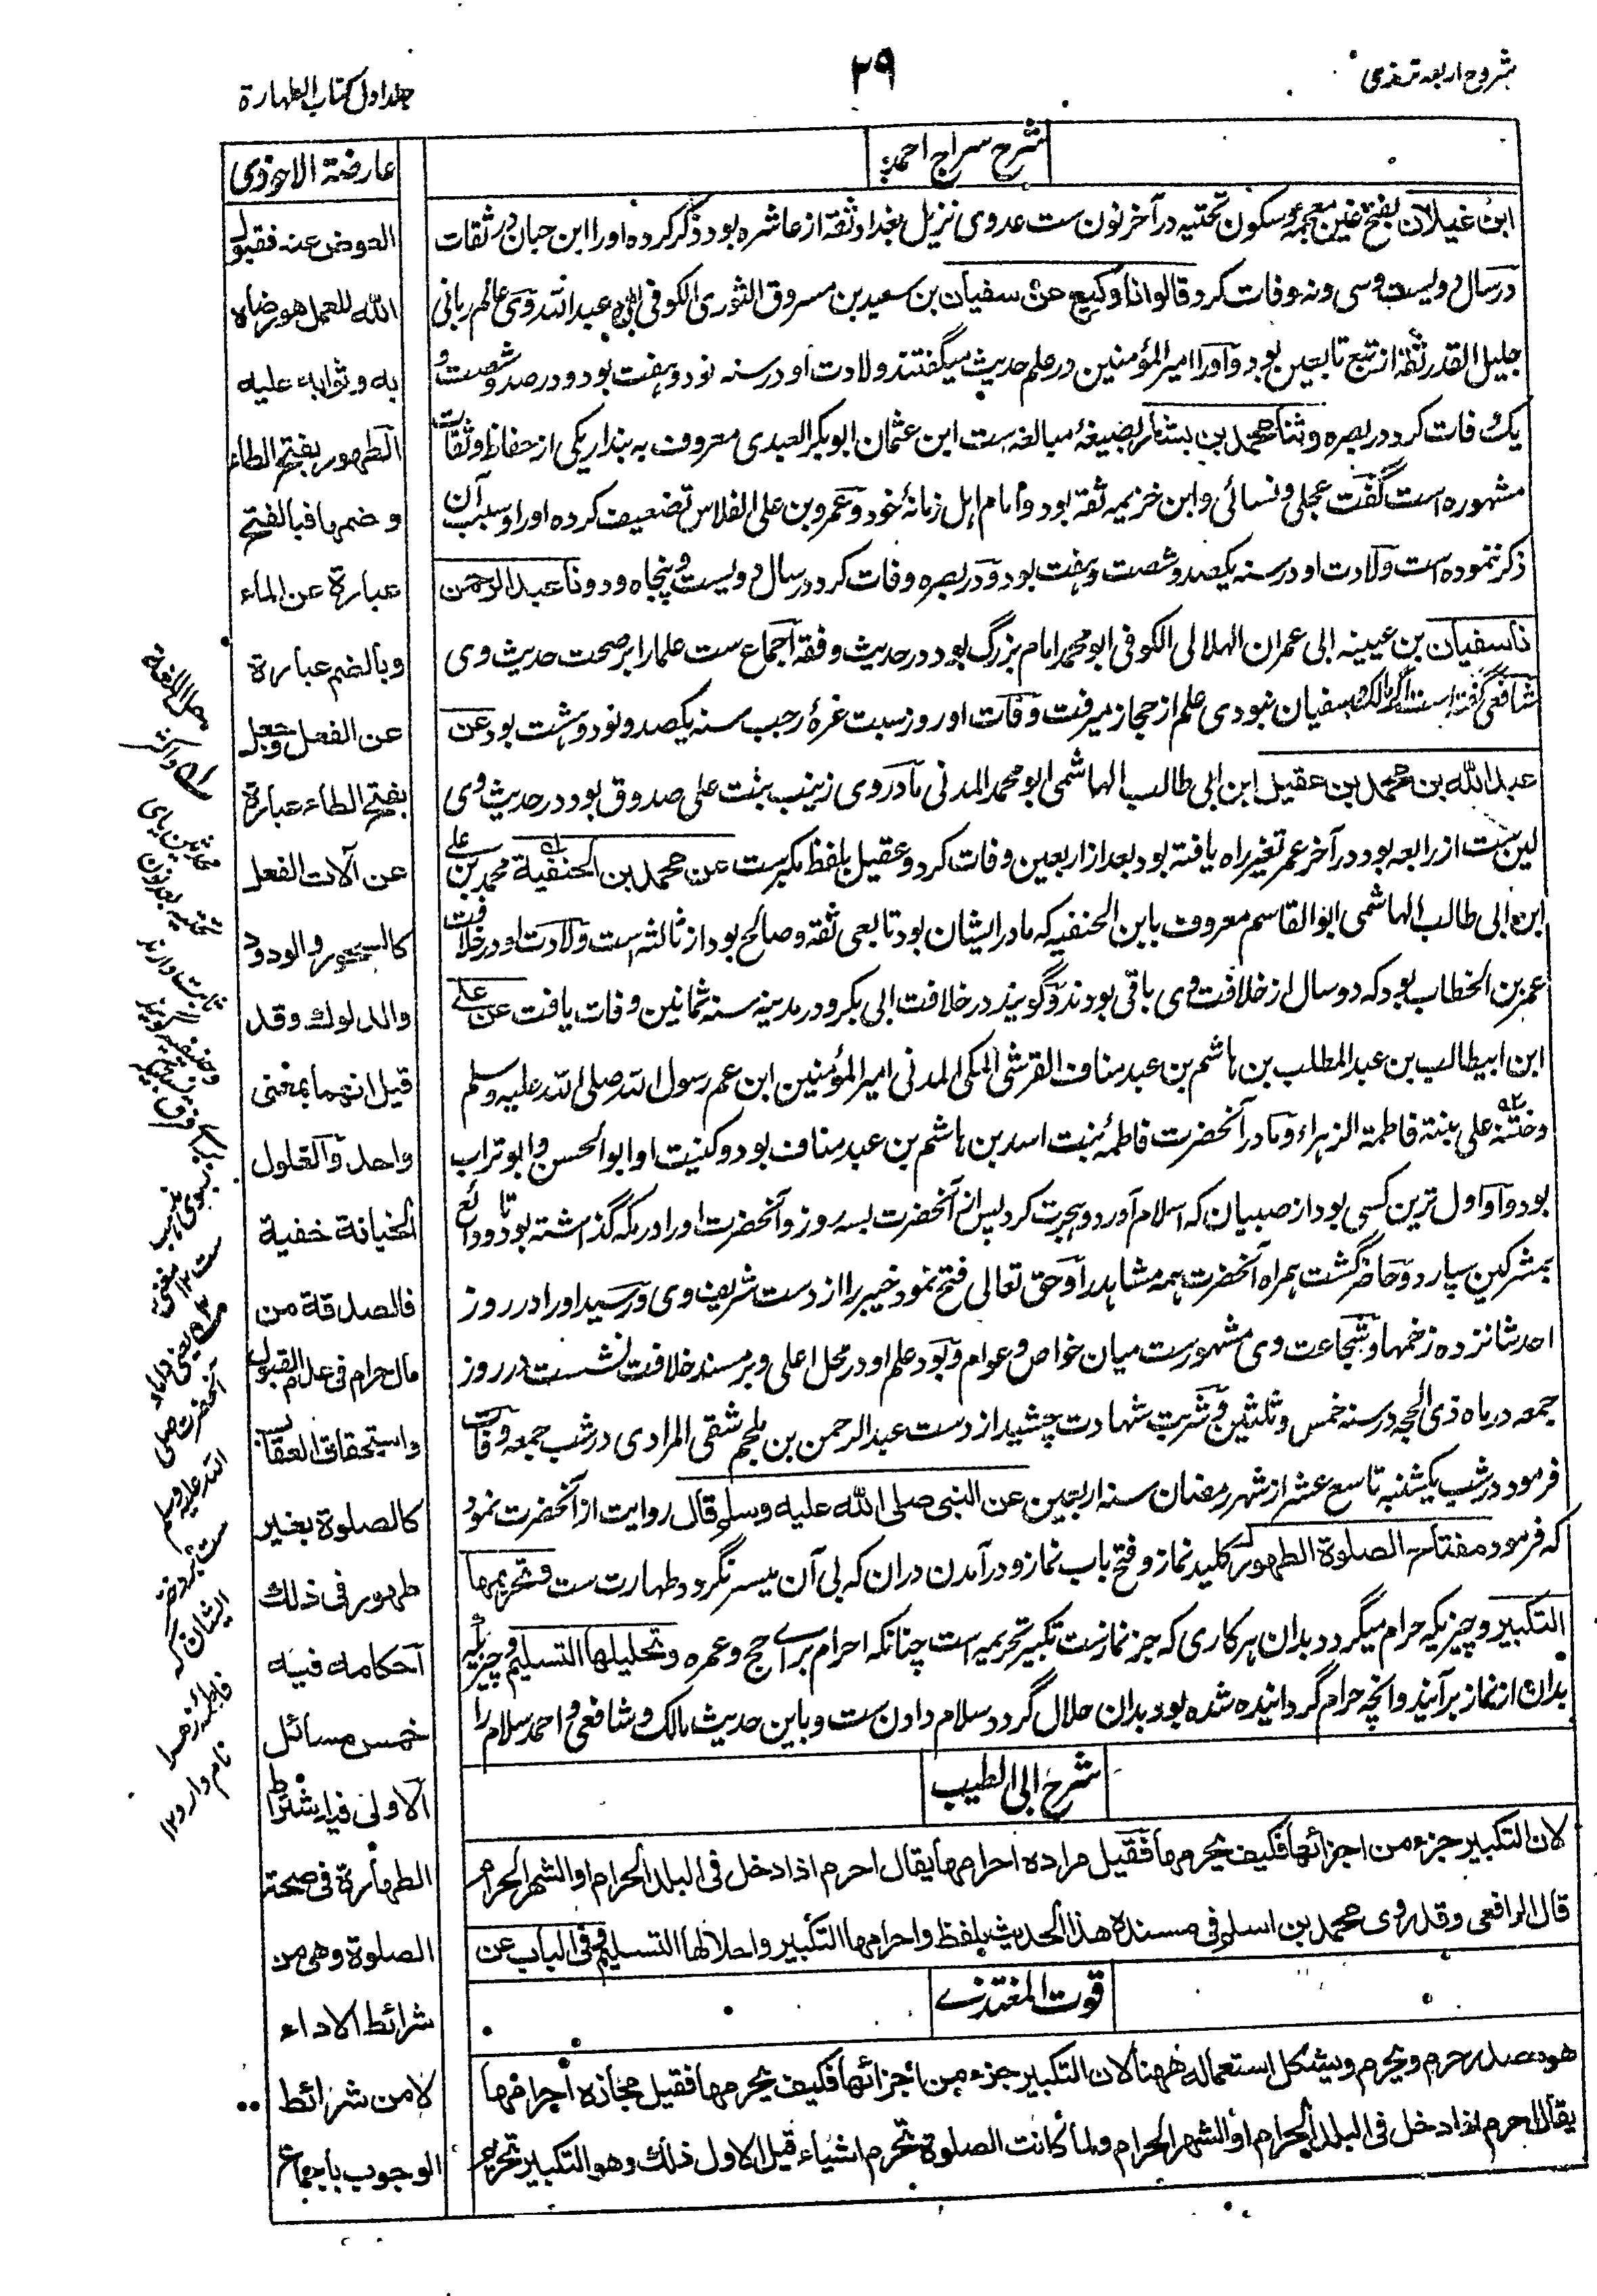 شروح اربعه ترمذی
۲۹
جلد اول کتاب الطهارة
شرح سراج احمد
ابن غیلان بفتح غین معجمه و سکون تحتیه در آخر نون ست عدوی نزیل بغداد ثقة از عاشره بود ذکر کرده اورا ابن حبان در ثقات
در سال دویست و سی و نه وفات کرد قالوا نا وکیع عن سفیان بن سعید بن مسروق الثوری الکوفی ابی عبد الله روی عالم ربانی
جلیل القدر ثقة از تبع تابعین بود و اورا امیر المؤمنین در علم حدیث میگفتند ولادت او در سنه نود و هفت بود و در صد و شصت و
یک وفات کرد در بصره و ثنا محمد بن بشار بصیغهٔ مبالغه است ابن عثمان ابوبکر العبدی معروف به بندار یکی از حفاظ و ثقات
مشهوره است گفت عجلی و نسائی و ابن خزیمه ثقه بود و امام اهل زمانهٔ خود و عمرو بن علی الفلاس تضعیف کرده اورا و سبب آن
ذکر ننموده است ولادت او در سنه یکصد و شصت و هفت بود و در بصره وفات کرد در سال دویست و پنجاه و دو نا عبد الرحمن
نا سفیان بن عیینه ابی عمران الهلالی الکوفی ابو محمد امام بزرگ بود در حدیث و فقه اجماع ست علما را بر صحت حدیث وی
شافعی گفته است اگر مالک و سفیان نبودی علم از حجاز میرفت وفات او روز سبت غرهٔ رجب سنه یکصد و نود و هشت بود عن
عبد الله بن محمد بن عقیل ابن ابی طالب الهاشمی ابو محمد المدنی مادر وی زینب بنت علی صدوق بود در حدیث وی
لین ست از رابعه بود در آخر عمر تغیر راه یافته بود بعد از اربعین وفات کرد و عقیل بلفظ مکبر ست عن محمد بن الحنفیة محمد بن علی
ابن ابی طالب الهاشمی ابو القاسم معروف بابن الحنفیه که مادر ایشان بود تابعی ثقه و صالح بود از ثالثه است ولادت او در خلافت
عمر بن الخطاب بود که دو سال از خلافت وی باقی بودند و گویند در خلافت ابی بکر و در مدینه سنه ثمانین وفات یافت عن علی
ابن ابیطالب بن عبد المطلب بن هاشم بن عبد مناف القرشی المکی المدنی امیر المؤمنین ابن عم رسول الله صلی الله علیه وسلم
وختنه علی بنته فاطمة الزهراء و مادر آنحضرت فاطمه بنت اسد بن هاشم بن عبد مناف بود و کنیت او ابو الحسن و ابو تراب
بود و او اول ترین کسی بود از صبیان که اسلام آورد و هجرت کرد پس از آنحضرت بسه روز و آنحضرت اورا در مکه گذاشته بود تا ودائع
بمشرکین سپارد و حاضر گشت همراه آنحضرت همه مشاهد را و حق تعالی فتح نمود خیبر را از دست شریف وی و رسید اورا در روز
احد شانزده زخمها و شجاعت وی مشهور ست میان خواص و عوام و بود علم او در محل اعلی و بر مسند خلافت نشست در روز
جمعه در ماه ذی الحجه در سنه خمس و ثلثین و شربت شهادت چشید از دست عبد الرحمن بن ملجم شقی المرادی در شب جمعه وفات
فرمود در شب یکشنبه تاسع عشر از شهر رمضان سنه اربعین عن النبی صلی الله علیه وسلم قال روایت از آنحضرت نمود
که فرمود مفتاح الصلوة الطهور کلید نماز و فتح باب نماز و در آمدن در ان که بی آن میسر نگردد طهارت ست و تحریمها
التکبیر و چیزیکه حرام میگردد بدان هر کاری که جز نماز ست تکبیر تحریمه است چنانکه احرام برای حج و عمره و تحلیلها التسلیم و چیزیکه
بدان از نماز بر آیند و آنچه حرام گردانیده شده بود بدان حلال گردد سلام دادن ست و باین حدیث مالک و شافعی و احمد سلام را
شرح ابی الطیب
لان التکبیر جزء من اجزائها فکیف یحرمها فقیل مراده احرامها یقال احرم اذا دخل فی البلد الحرام او الشهر الحرام
قال الرافعی وقد روی محمد بن اسلم فی مسنده هذا الحدیث بلفظ واحرامها التکبیر واحلالها التسلیم وفی الباب عن
قوت المغتذی
هو مصدر حرم و یحرم ویشکل استعماله ههنا لان التکبیر جزء من اجزائها فکیف یحرمها فقیل مجازه احرامها
یقال احرم اذا دخل فی البلد الحرام او الشهر الحرام ولما کانت الصلوة تحرم اشیاء قیل الاول ذلک وهو التکبیر تحریم
عارضة الاحوذی
العوض عنه فقبول
الله للعمل هو رضاه
به وثوابه علیه
الطهور بفتح الطاء
وضمها فبالفتح
عبارة عن الماء
وبالضم عبارة
عن الفعل وجعل
بفتح الطاء عبارة
عن آلات الفعل
کالسحور والودود
والدلوک وقد
قیل انهما بمعنی
واحد والغلول
الخیانة خفیة
فالصدقة من
مال حرام فی عدم القبول
واستحقاق العقاب
کالصلوة بغیر
طهور فی ذلک
احکامه فیه
خمس مسائل
الاولی فی اشتراط
الطهارة فی صحة
الصلوة وهی من
شرائط الاداء
لا من شرائط
الوجوب باجماع
حل اللغة
محدثین یای
تحتیه بعد نون
الله علیه وسلم
ایشان که
فاطمه زهرا
نام دارد ۱۲